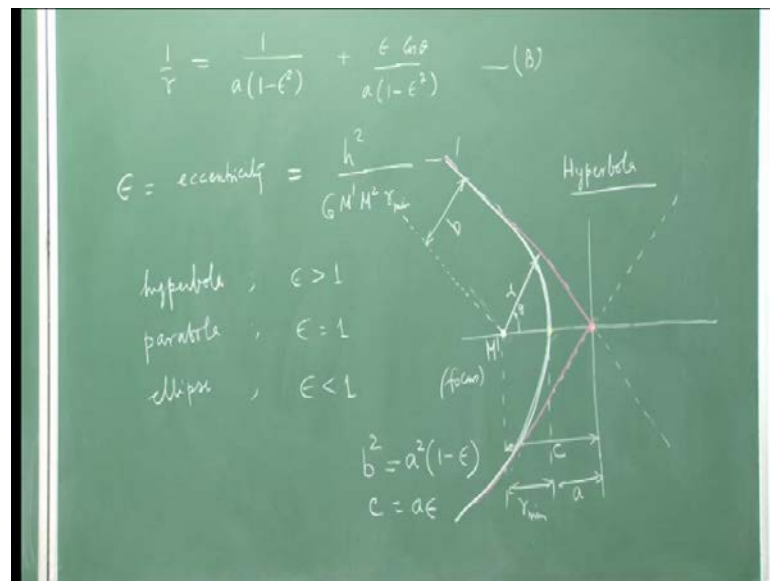 1/r = 1/a(1-ϵ²) + ϵ Cosθ/a(1-ϵ²) —(B)
ϵ = eccentricity = h²/G M' M² r_min - 1
Hyperbola
b
hyperbola , ϵ > 1
r
θ
parabola , ϵ = 1
M'
(focus)
ellipse , ϵ < 1
b² = a²(1-ϵ)
c
c = aϵ
r_min
a